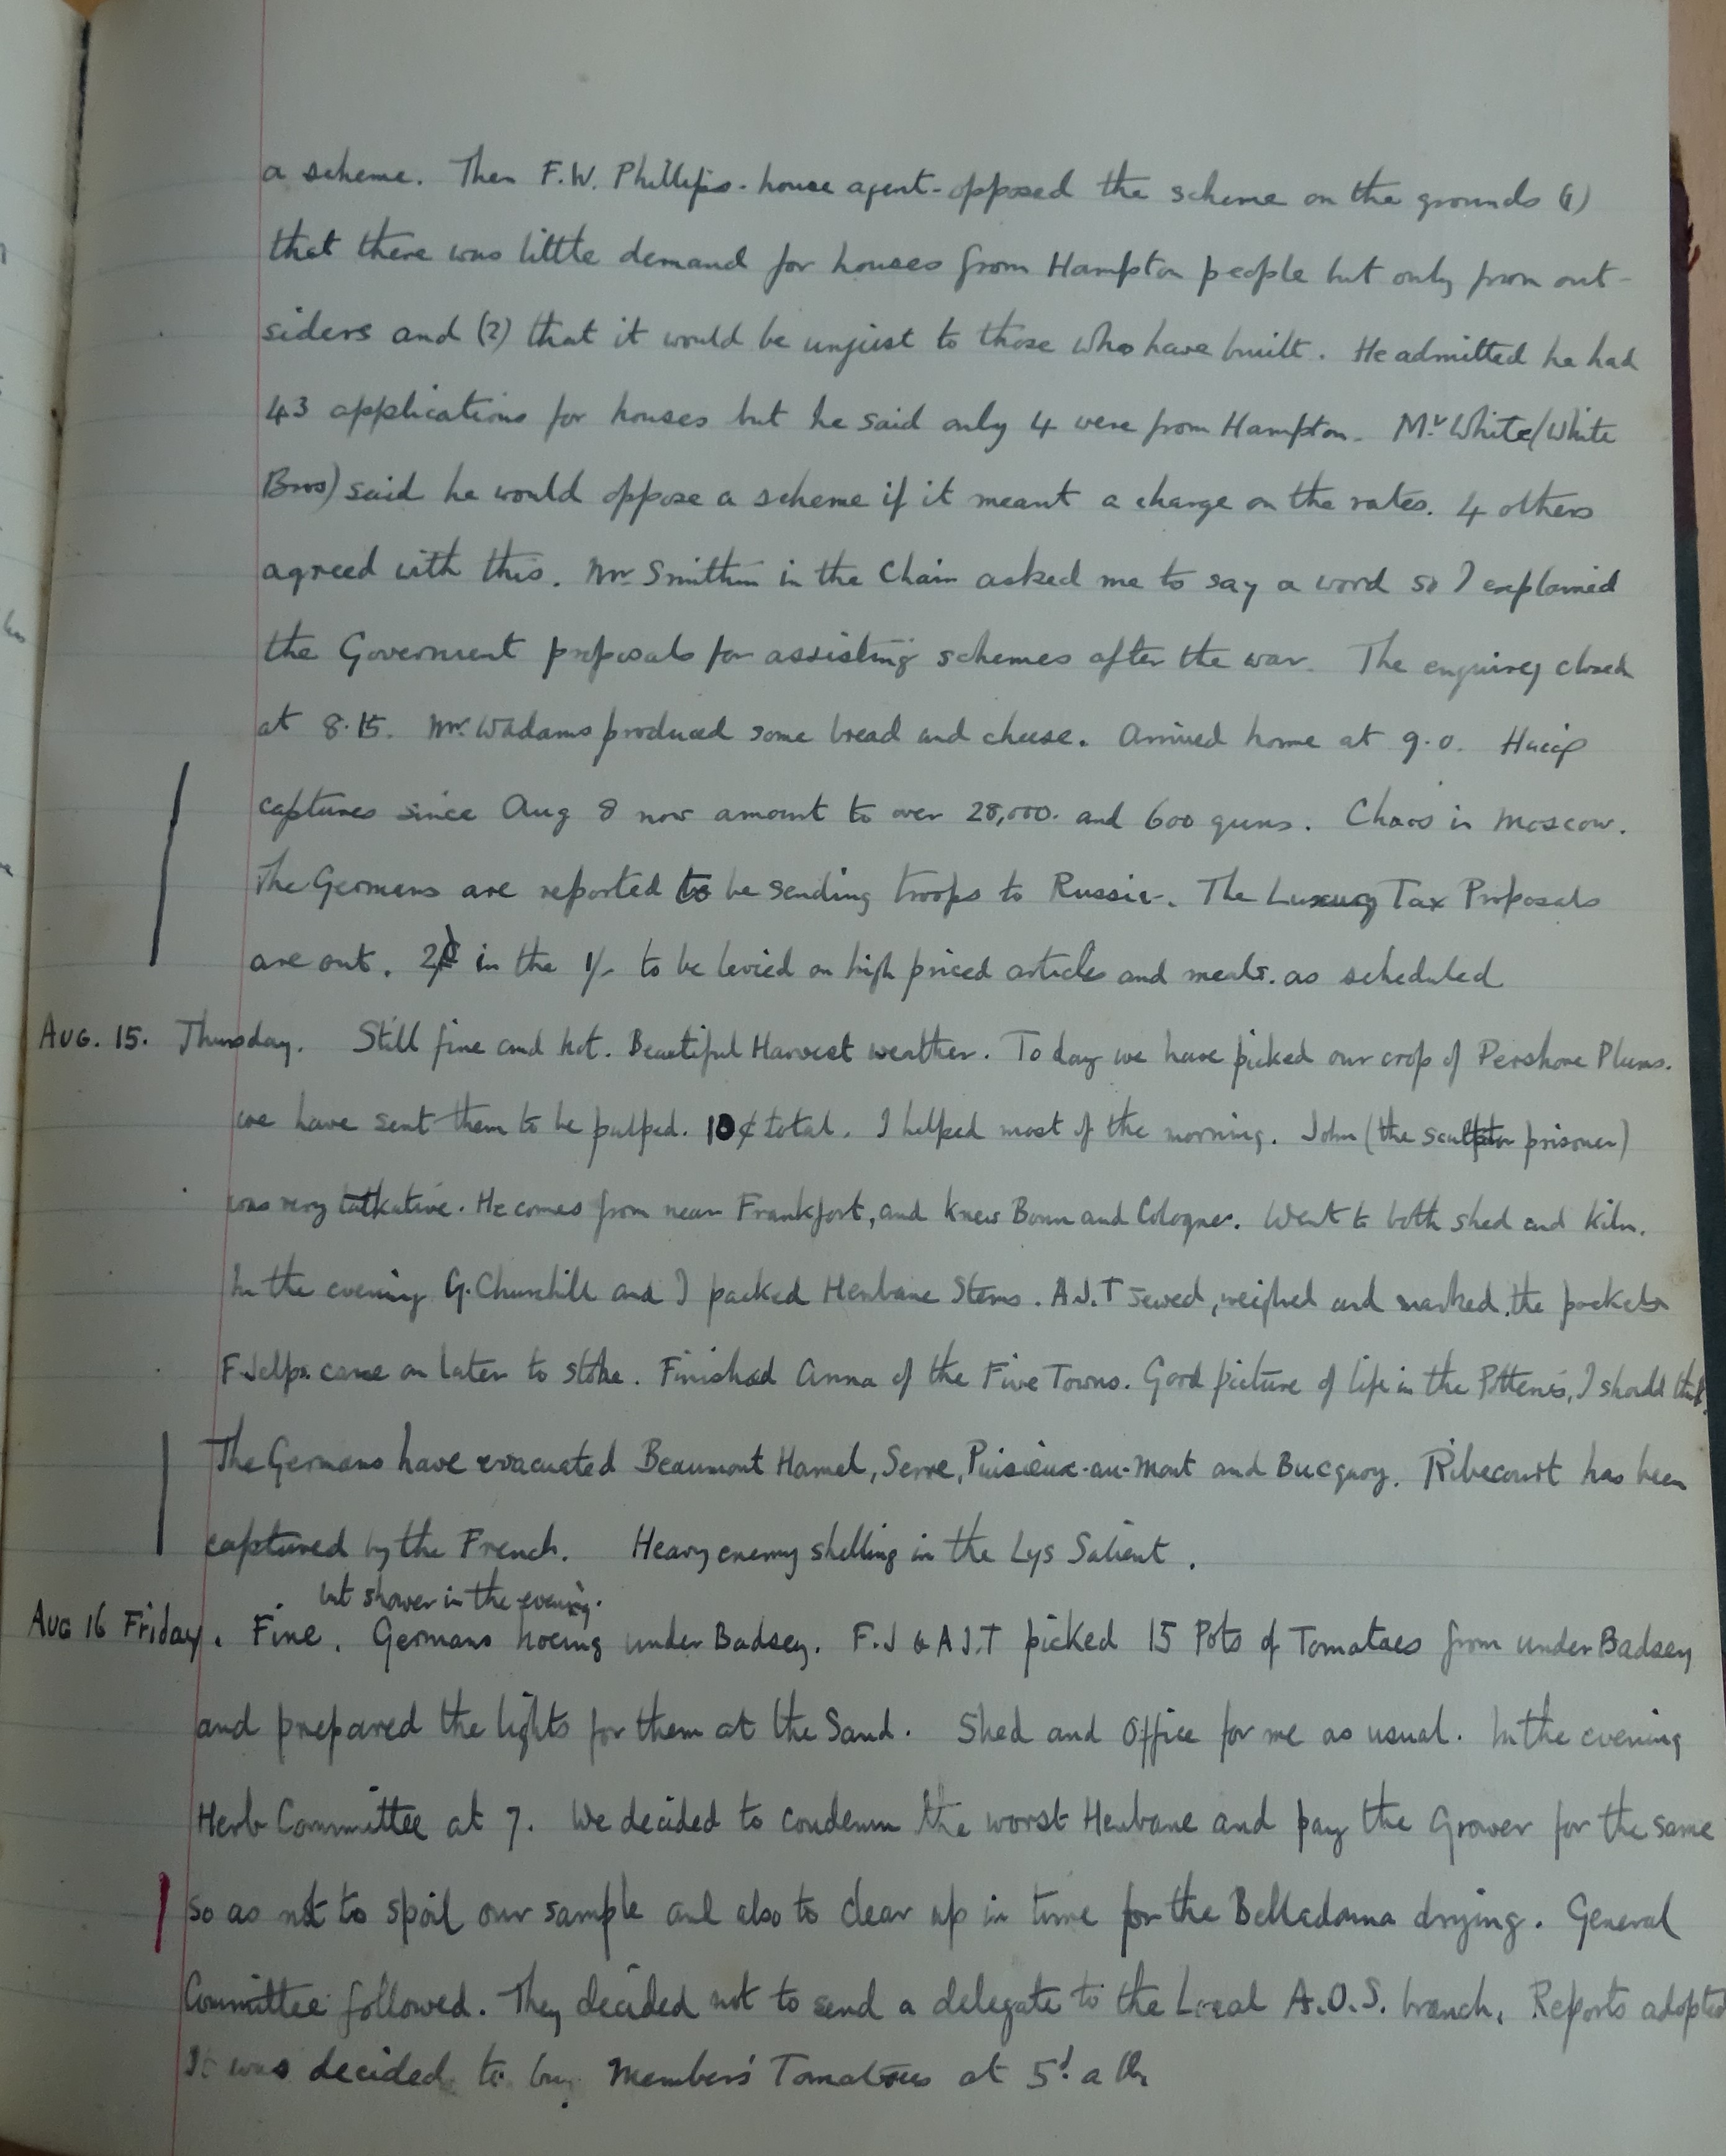 a scheme. Then F.W. Phillips - house agent - opposed the scheme on the grounds (1)
that there was little demand for houses from Hampton people but only from out-
siders and (2) that it would be unjust to those who have built. He admitted he had
43 applications for houses but he said only 4 were from Hampton. Mr White (White
Bros) said he would oppose a scheme if it meant a charge on the rates. 4 others
agreed with this. Mr Smithin in the Chair asked me to say a word so I explained
the Government proposals for assisting schemes after the war. The enquiry closed
at 8.15. Mr. Wadams produced some bread and cheese. Arrived home at 9.0. Haig
captures since Aug 8 now amount to over 28,000. and 600 guns. Chaos in Moscow.
The Germans are reported to be sending troops to Russia. The Luxury Tax Proposals
are out. 2d in the 1/- to be levied on high priced articles and meals. as scheduled
AUG. 15. Thursday. Still fine and hot. Beautiful Harvest weather. To day we have picked our crop of Pershore Plums.
we have sent them to be pulped. total. I helped most of the morning. John (the sculptor prisoner)
was very talkative. He comes from near Frankfort, and knew Bonn and Cologne. Went to both shed and kiln.
In the evening G. Churchill and I packed Henbane Stems. A.J.T sewed, weighed and marked the pockets
F Jelfs came on later to stoke. Finished Anna of the Five Towns. Good picture of life in the Potteries, I should think.
The Germans have evacuated Beaumont Hamel, Serre, Puisieux-au-Mont and Bucquoy. Ribecourt has been
captured by the French. Heavy enemy shelling in the Lys Salient.
but shower in the evening.
Aug 16 Friday. Fine. Germans hoeing under Badsey. F.J & A J.T picked 15 Pots of Tomatoes from under Badsey
and prepared the lights for them at the Sand. Shed and Office for me as usual. In the evening
Herb Committee at 7. We decided to condemn the worst Henbane and pay the Grower for the same
so as not to spoil our sample and also to clear up in time for the Belladonna drying. General
Committee followed. They decided not to send a delegate to the Local A.O.S. branch. Reports adopted
It was decided to buy Members' Tomatoes at 5d a lb